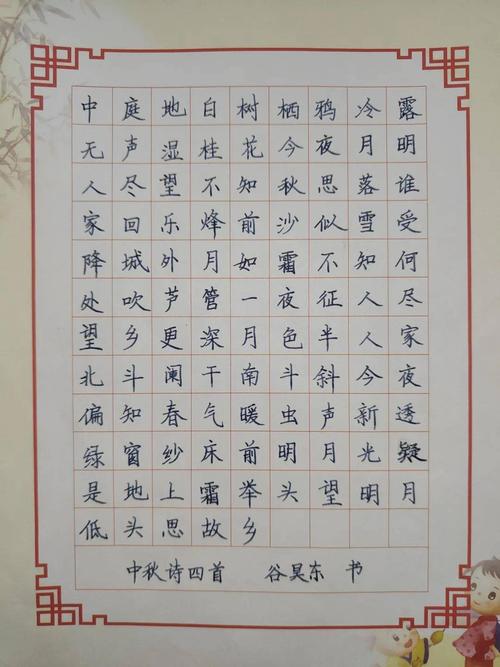 中庭地白树栖鸦冷露
无声湿桂花今夜月明
人尽望不知秋思落谁
家回乐烽前沙似雪受
降城外月如霜不知何
处吹芦管一夜征人尽
望乡更深月色半人家
北斗阑干南斗斜今夜
偏知春气暖虫声新透
绿窗纱床前明月光疑
是地上霜举头望明月
低头思故乡
中秋诗四首 谷昊东 书